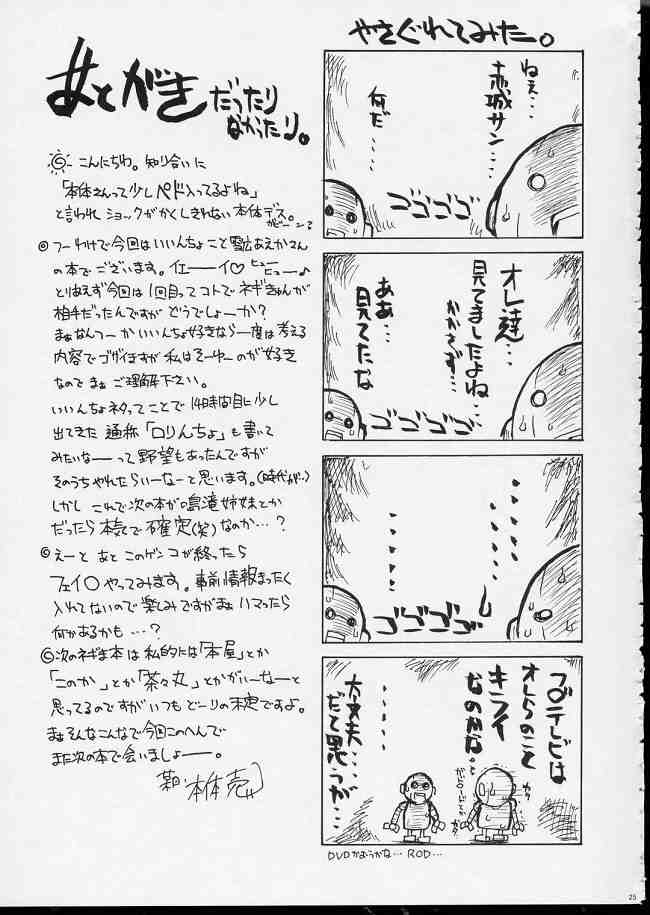 やさぐれてみたー。
ねぇ・・・
赤城サン・・・
何だ・・・・
ゴゴゴゴ
オレ達・・・
見てましたよね・・・
かかさず・・・
ああ・・・
見てたな
ゴゴゴゴ
ゴゴゴゴ
フジテレビは
オレらのこと
キライ
なのかな。
大丈夫・・・・
だと思うが・・・
DVDかおうかな… ROD…
あとがきだったり
なかったり。
こんにちわ。知り合いに
「本体さんって少しペド入ってるよね」
と言われショックがかくしきれない本体デス。
ガビーン
フーわけで今回はいいんちょこと雪広あえかさん
の本でございます。イエーーイ♡ヒューヒュー♪
とりあえず今回は1回目ってコトでネギきゅんが
相手だったんですがどうでしょーか?
まぁなんつーかいいんちょ好きなら一度は考える
内容でゴザイますが私はそーゆーのが好き
なのでまぁご理解下さい。
いいんちょネタってことで14時間目に少し
出てきた通称「ロりんちょ」も書いて
みたいなーーって野望もあったんですが
そのうちやれたらいーなーと思います。(時代が‥)
しかしこれで次の本が鳴滝姉妹とか
だったら本気で不確定(笑)なのか…?
えーとあとこのゲンコが終ったら
フェイ○やってみます。事前情報まったく
入れてないので楽しみですがまぁハマったら
何かあるかも…?
次のネギま本は私的には「本屋」とか
「このか」とか「茶々丸」とかがいーなーと
思ってるのですがいつもどーりの未定ですよ。
まぁそんなこんなで今回このへんで
また次の本で会いましょーー。
本体売
25